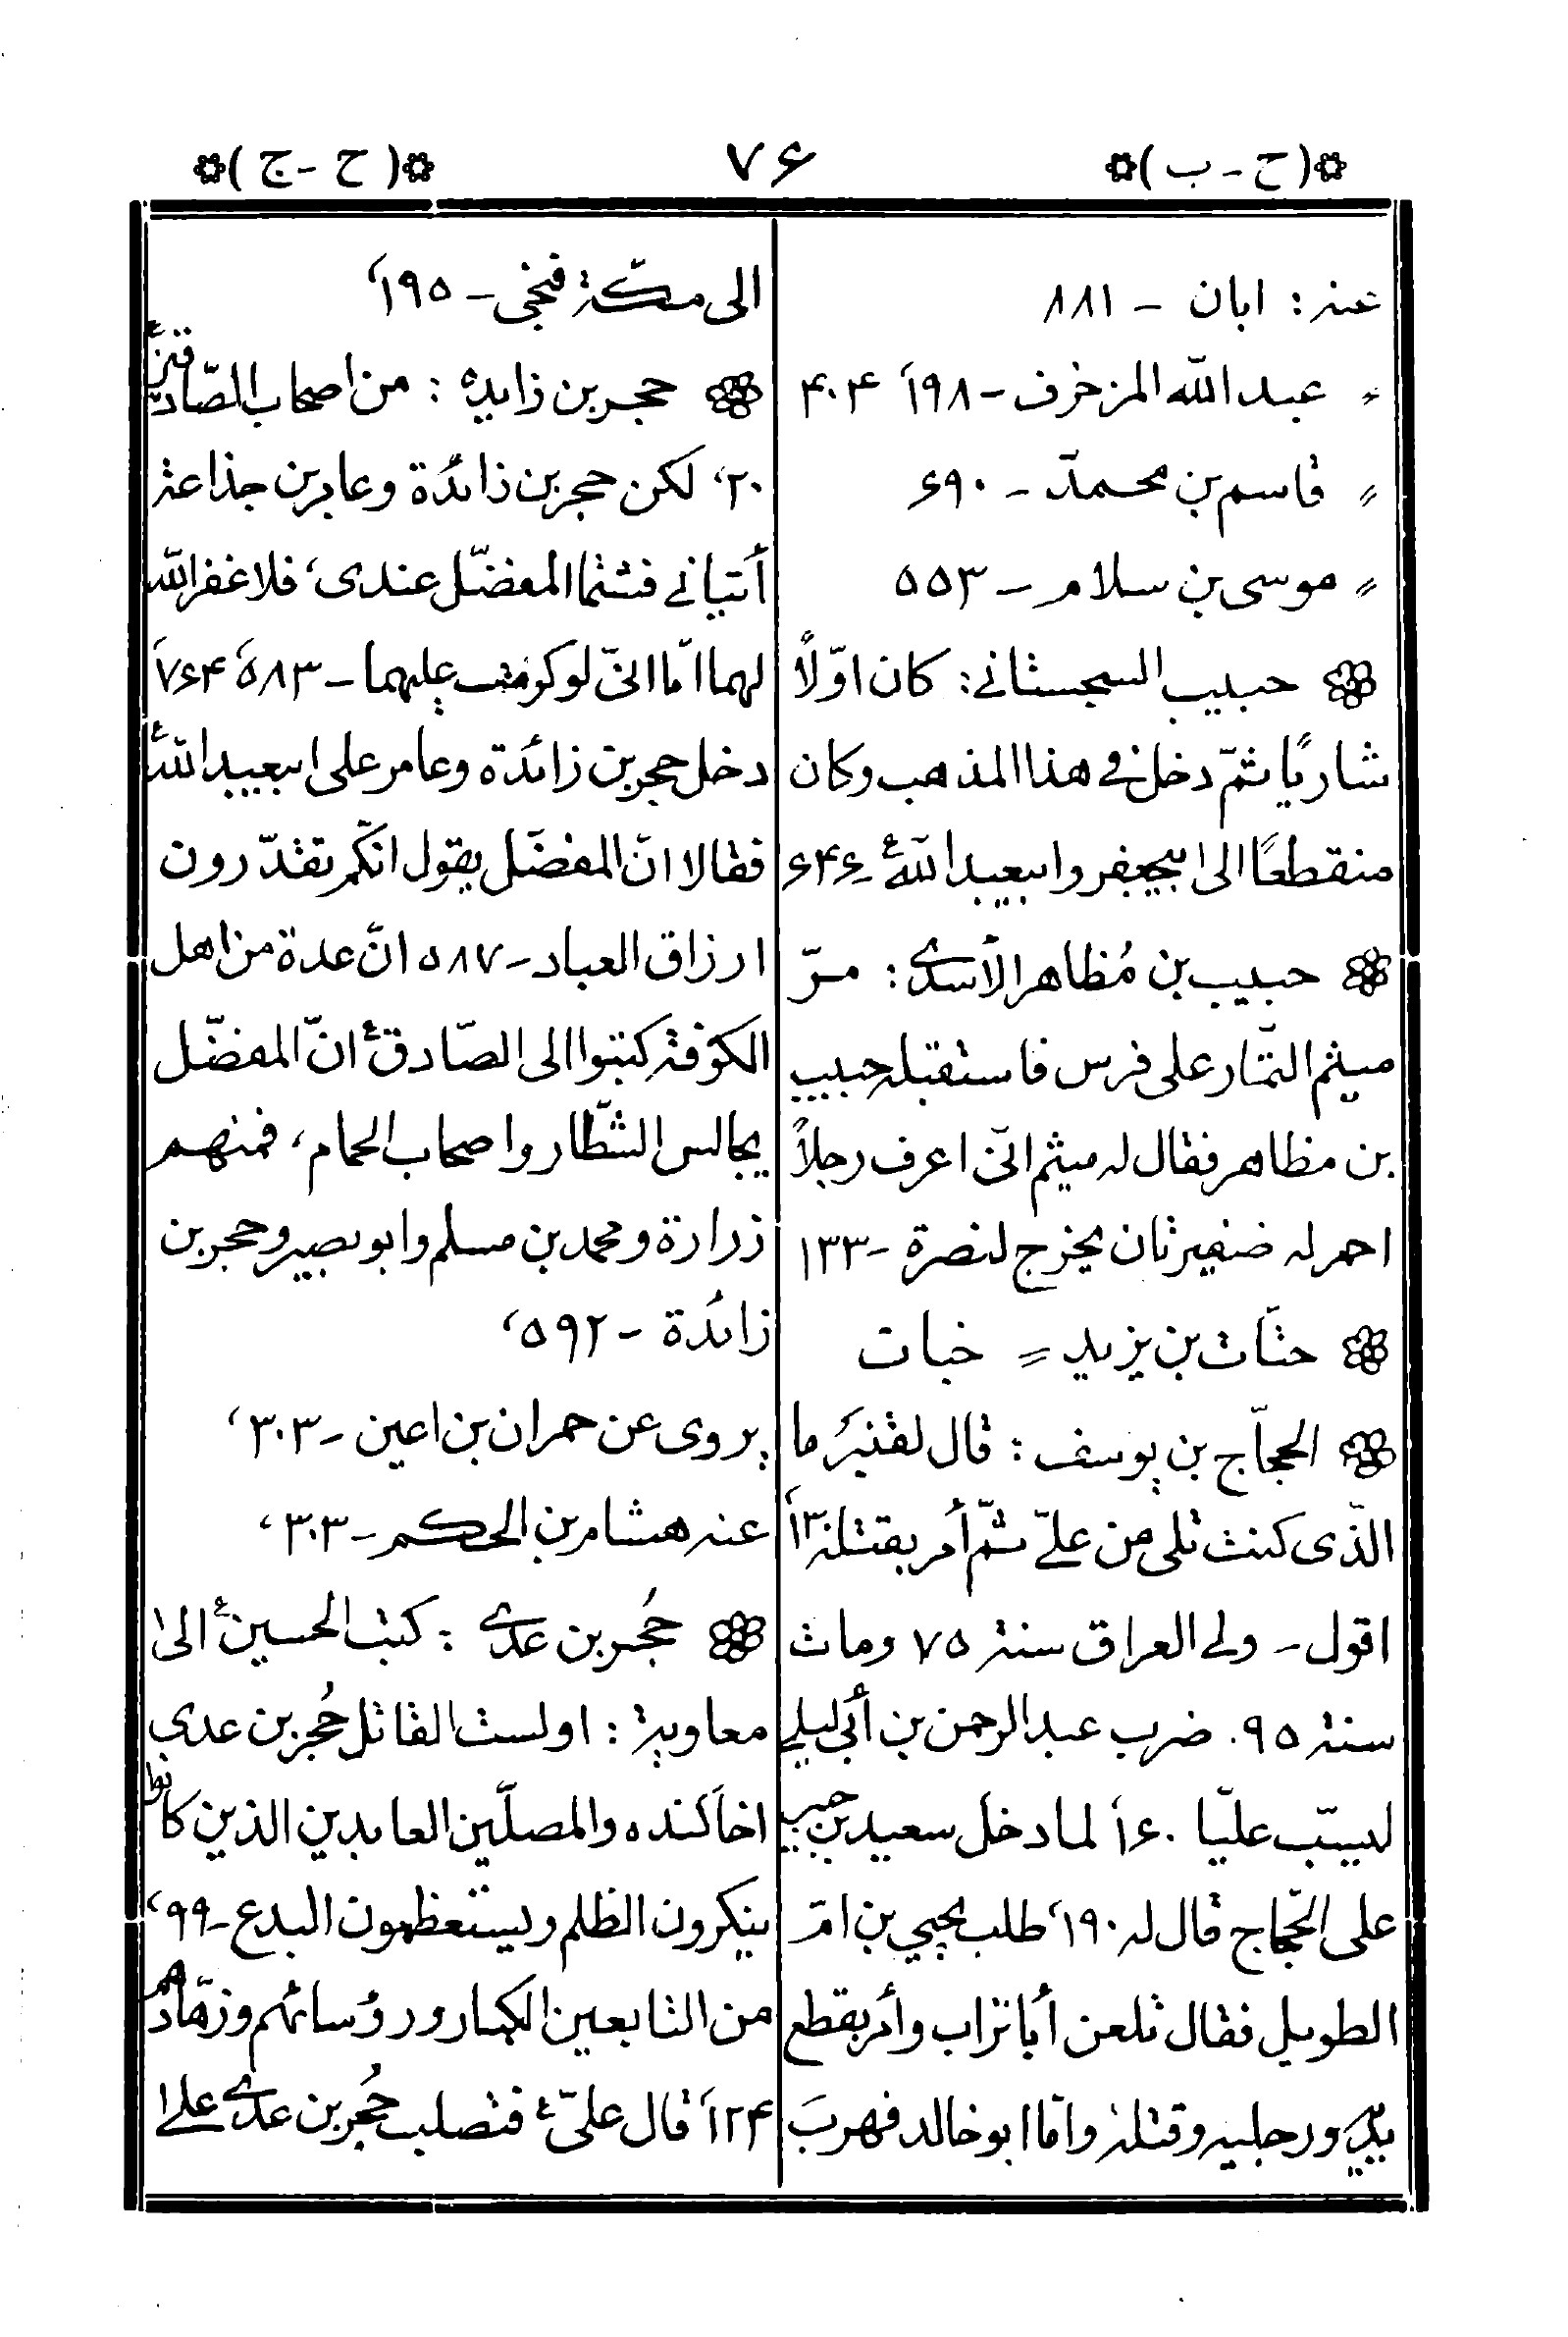 ❁(ح - ب)❁ ٧۶ ❁(ح - ج)❁
عنه : ابان - ٨٨١
〃 عبدالله المزخرف - ١٩٨، ۴٠۴
〃 قاسم بن محمد - ۶٩٠
〃 موسى بن سلام - ٥٥٣
❁ حبيب السجستاني : كان اوّلاً
شاريًا ثمّ دخل في هذا المذهب وكان
منقطعًا الى ابيجعفر وابيعبدالله ع - ۶۴۶
❁ حبيب بن مُظاهر الأسدي : مرّ
ميثم التمّار على فرس فاستقبله حبيب
بن مظاهر فقال له ميثم انّى اعرف رجلاً
احمر له ضفيرتان يخرج لنصرة - ١٣٣
❁ حتّات بن يزيد = خبات
❁ الحجّاج بن يوسف : قال لقنبر ما
الّذى كنت تلى من علىّ ثمّ أمر بقتله
اقول - ولى العراق سنة ٧٥ ومات
سنة ٩٥. ضرب عبدالرحمن بن أبى ليلى
ليسبّ عليّا ١۶٠، لما دخل سعيد بن جبير
على الحّجاج قال له ١٩٠، طلب يحيي بن امّ
الطويل فقال تلعن أبا تراب وأمر بقطع
يديه ورجليه وقتله وامّا ابوخالد فهربَ
الى مكّة فنجى - ١٩٥،
❁ حجر بن زايده : من اصحاب الصّادقين ع
٢٠، لكن حجر بن زائدة وعامر بن جذاعة
أتيانى فشتما المفضّل عندى، فلا غفر الله
لهما امّا انّى لو كرمت عليهما - ٥٨٣، ٧۶۴،
دخل حجر بن زائدة وعامر على ابيعبدالله ع
فقالا انّ المفضّل يقول انّكم تقدّرون
ارزاق العباد - ٥٨٧ انّ عدة من اهل
الكوفة كتبوا الى الصّادق ع انّ المفضّل
يجالس الشّطار واصحاب الحمام، فمنهم
زرارة ومحمد بن مسلم وابو بصير وحجر بن
زائدة - ٥٩٢،
يروى عن حمران بن اعين - ٣٠٣،
عنه هشام بن الحكم - ٣٠٣،
❁ حُجر بن عدي : كتب الحسين ع الى
معاوية : اولست القاتل حُجر بن عدي
اخا كنده والمصلّين العابدين الذين كانوا
ينكرون الظلم ويستعظمون البدع - ٩٩،
من التابعين الكبار ورؤسائهم وزهّادهم
١٢۴، قال علىّ ع فتصلب حُجر بن عدي على